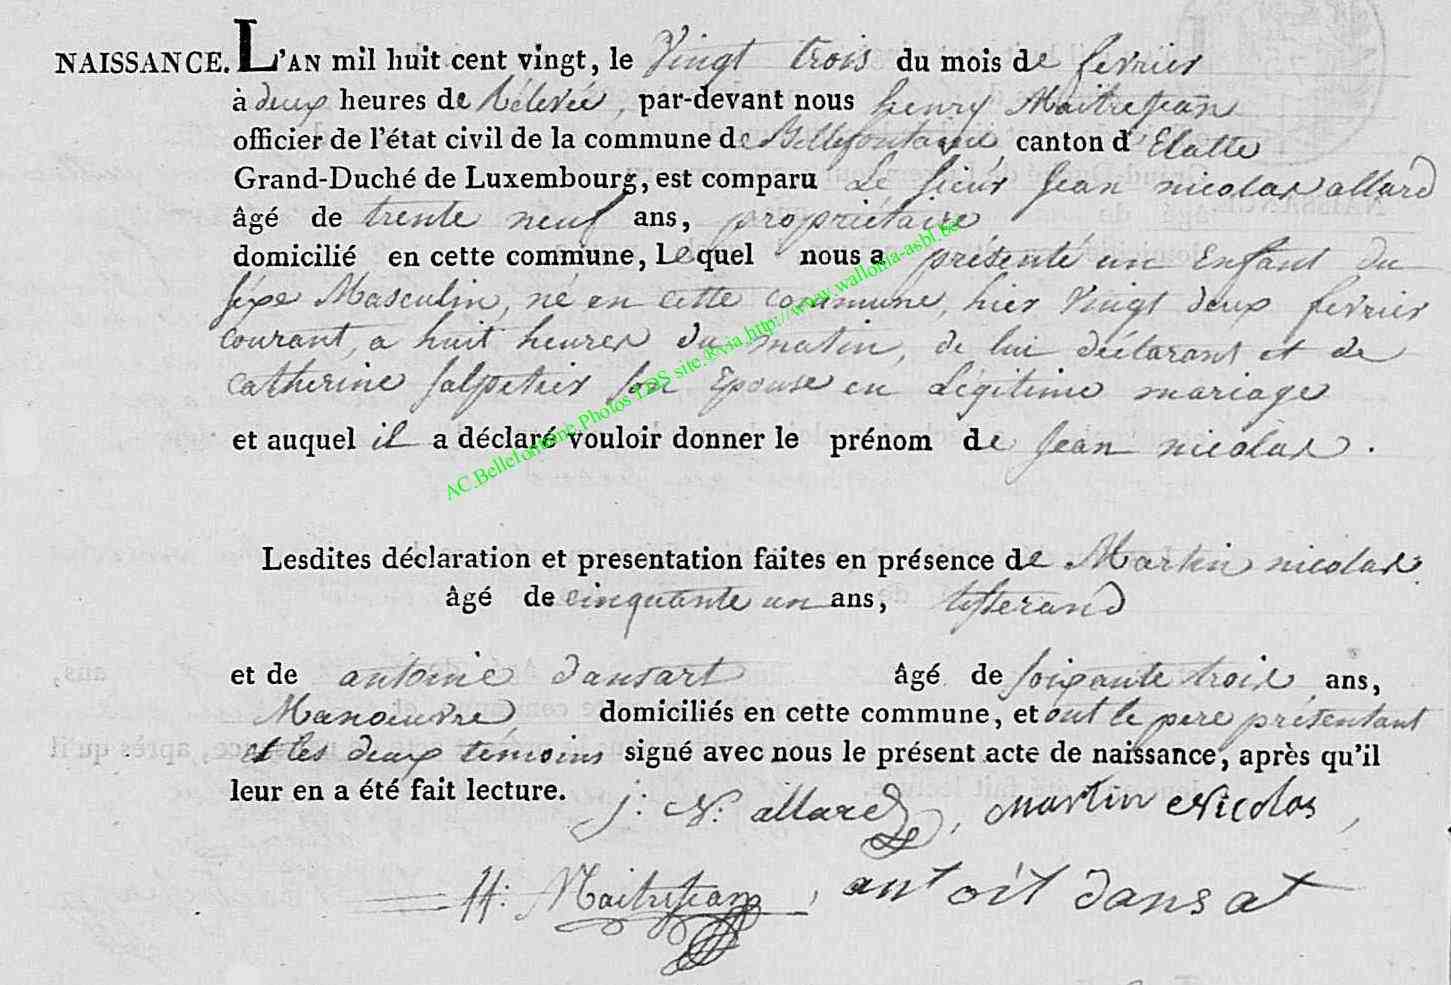 NAISSANCE. L'AN mil huit cent vingt, le Vingt trois du mois de fevrier
à deux heures de Rélevée, par-devant nous henry Maitrejean
officier de l'état civil de la commune de Bellefontaine, canton d'Etalle
Grand-Duché de Luxembourg, est comparu Le sieur Jean nicolas allard
âgé de trente neuf ans, propriétaire
domicilié en cette commune, Lequel nous a présenté un Enfant du
séxe Masculin, né en cette commune, hier Vingt deux fevrier
courant, a huit heures du matin, de lui déclarant et de
catherine salpetier son Epouse en Légitime mariage
et auquel il a déclaré vouloir donner le prénom de Jean nicolas.
AC.Bellefontaine.Photos LDS site.R via http://www.wallonia-asbl.be/
Lesdites déclaration et presentation faites en présence de Martin nicolas
âgé de cinquante un ans, tisserand
et de antoine dansart âgé de soixante trois ans,
Manoeuvre domiciliés en cette commune, et ont le pere présentant
et les deux témoins signé avec nous le présent acte de naissance, après qu'il
leur en a été fait lecture. j: N: allard, Martin Nicolas,
H: Maitrejean, antoit dansat